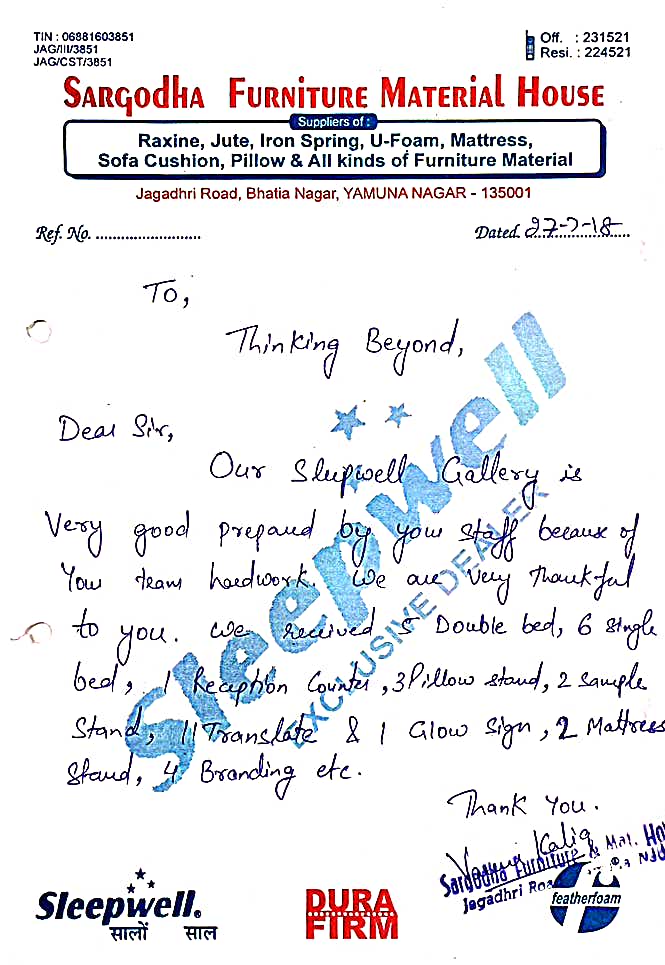 TIN : 06881603851
JAG/III/3851
JAG/CST/3851
Off. : 231521
Resi. : 224521
SARGODHA FURNITURE MATERIAL HOUSE
Suppliers of :
Raxine, Jute, Iron Spring, U-Foam, Mattress,
Sofa Cushion, Pillow & All kinds of Furniture Material
Jagadhri Road, Bhatia Nagar, YAMUNA NAGAR - 135001
Ref. No. .........................
Dated 27-7-18
To,
Thinking Beyond,
Dear Sir,
Our Sleepwell Gallery is
Very good prepared by your staff because of
Your team hardwork. We are very thankful
to you. We received 5 Double bed, 6 single
bed, 1 Reception Counter, 3 Pillow stand, 2 Sample
Stand, 11 Translate & 1 Glow Sign, 2 Mattress
Stand, 4 Branding etc.
Thank You.
Sleepwell
EXCLUSIVE DEALER
Sargodha Furniture & Mat.
Jagadhri
Sleepwell®
सालों साल
DURA
FIRM
featherfoam